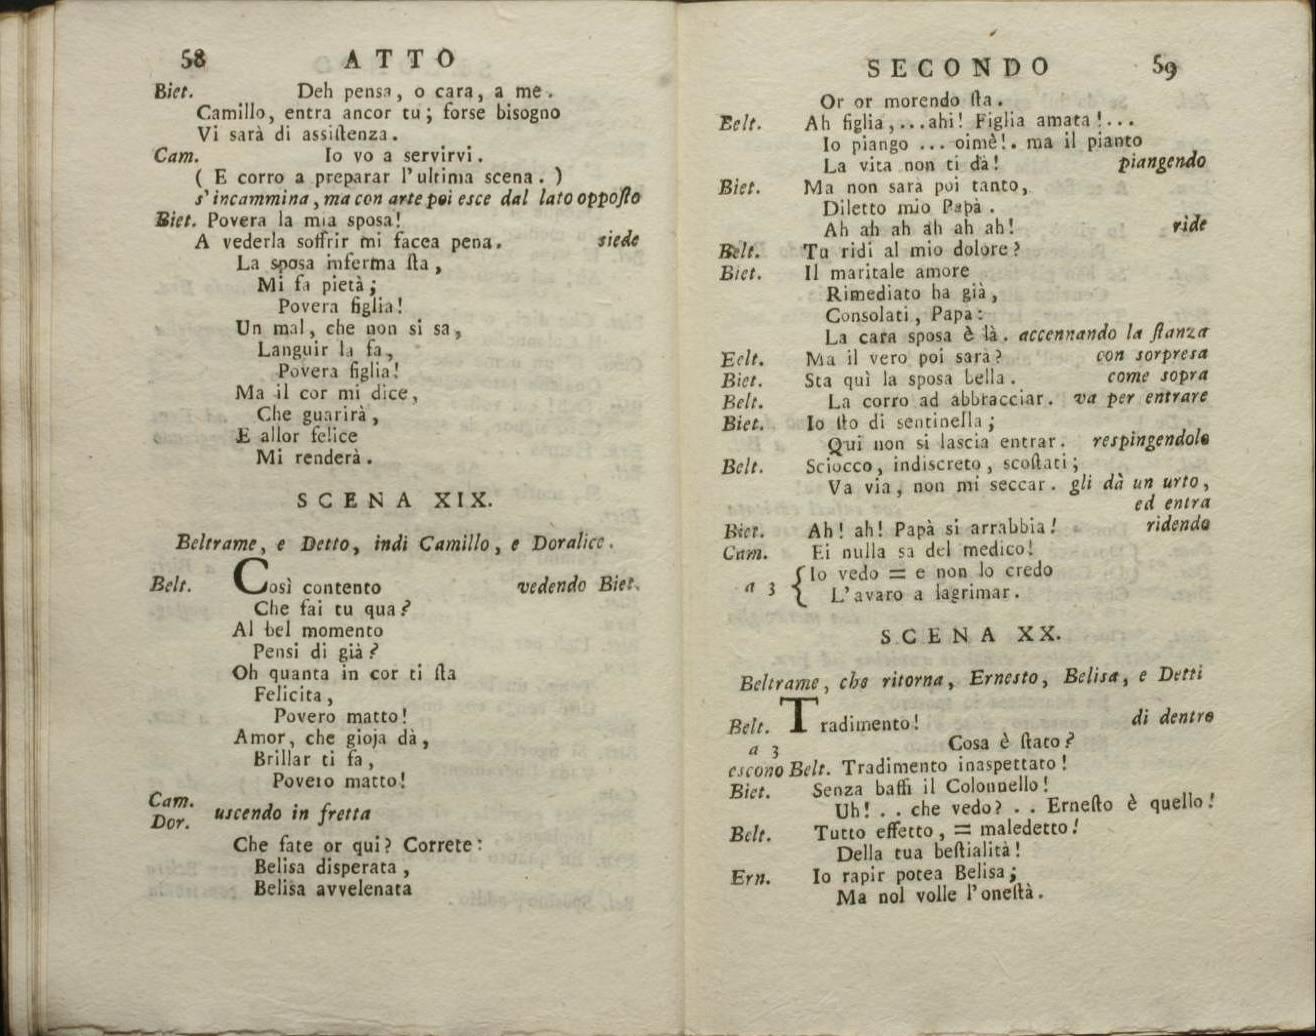 58 ATTO
Biet. Deh pensa, o cara, a me.
Camillo, entra ancor tu; forse bisogno
Vi sarà di assistenza.
Cam. Io vo a servirvi.
( E corro a preparar l'ultima scena. )
s'incammina, ma con arte poi esce dal lato opposto
Biet. Povera la mia sposa!
A vederla soffrir mi facea pena. siede
La sposa inferma sta,
Mi fa pietà;
Povera figlia!
Un mal, che non si sa,
Languir la fa,
Povera figlia!
Ma il cor mi dice,
Che guarirà,
E allor felice
Mi renderà.
SCENA XIX.
Beltrame, e Detto, indi Camillo, e Doralice.
Belt. Così contento vedendo Biet.
Che fai tu qua?
Al bel momento
Pensi di già?
Oh quanta in cor ti sta
Felicita,
Povero matto!
Amor, che gioja dà,
Brillar ti fa,
Povero matto!
Cam.
Dor. uscendo in fretta
Che fate or qui? Correte:
Belisa disperata,
Belisa avvelenata
SECONDO 59
Or or morendo sta.
Belt. Ah figlia,...ahi! Figlia amata!...
Io piango ... oimè!. ma il pianto
La vita non ti dà! piangendo
Biet. Ma non sarà poi tanto,
Diletto mio Papà.
Ah ah ah ah ah ah! ride
Belt. Tu ridi al mio dolore?
Biet. Il maritale amore
Rimediato ha già,
Consolati, Papa:
La cara sposa è là. accennando la stanza
Belt. Ma il vero poi sarà? con sorpresa
Biet. Sta quì la sposa bella. come sopra
Belt. La corro ad abbracciar. va per entrare
Biet. Io sto di sentinella;
Qui non si lascia entrar. respingendolo
Belt. Sciocco, indiscreto, scostati;
Va via, non mi seccar. gli dà un urto,
ed entra
Biet. Ah! ah! Papà si arrabbia! ridendo
Cam. Ei nulla sa del medico!
a 3 { Io vedo = e non lo credo
L'avaro a lagrimar.
SCENA XX.
Beltrame, che ritorna, Ernesto, Belisa, e Detti
Belt. Tradimento! di dentro
a 3 Cosa è stato?
escono Belt. Tradimento inaspettato!
Biet. Senza baffi il Colonnello!
Uh! . . che vedo? . . Ernesto è quello!
Belt. Tutto effetto, = maledetto!
Della tua bestialità!
Ern. Io rapir potea Belisa;
Ma nol volle l'onestà.